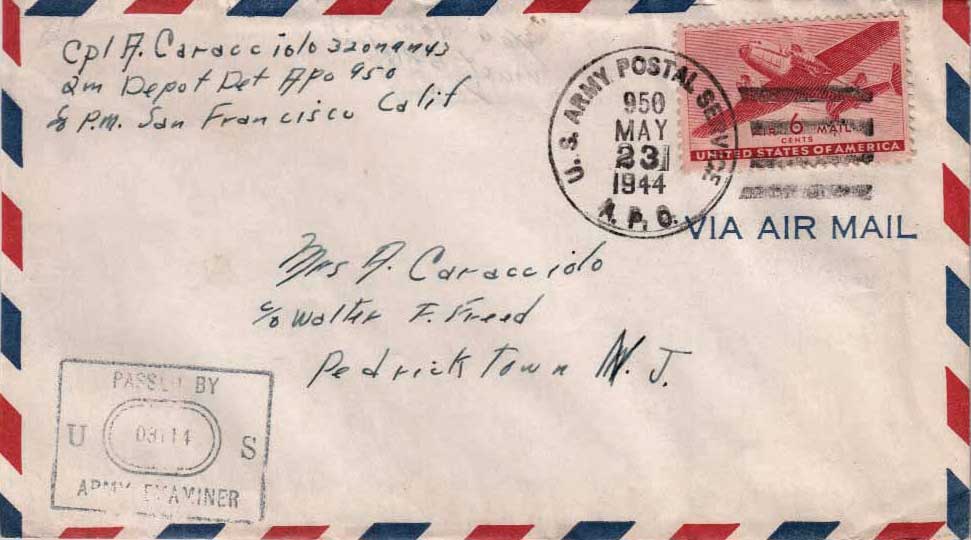 Cpl A. Caracciolo
Qm Depot Det Apo 950
c/o P.M. San Francisco Calif
U. S. ARMY POSTAL SERVICE
950
MAY
23
1944
A. P. O.
AIR 6 MAIL
CENTS
UNITED STATES OF AMERICA
VIA AIR MAIL
Mrs A. Caracciolo
c/o Walter F. Freed
Pedricktown N. J.
PASSED BY
U 03114 S
ARMY EXAMINER